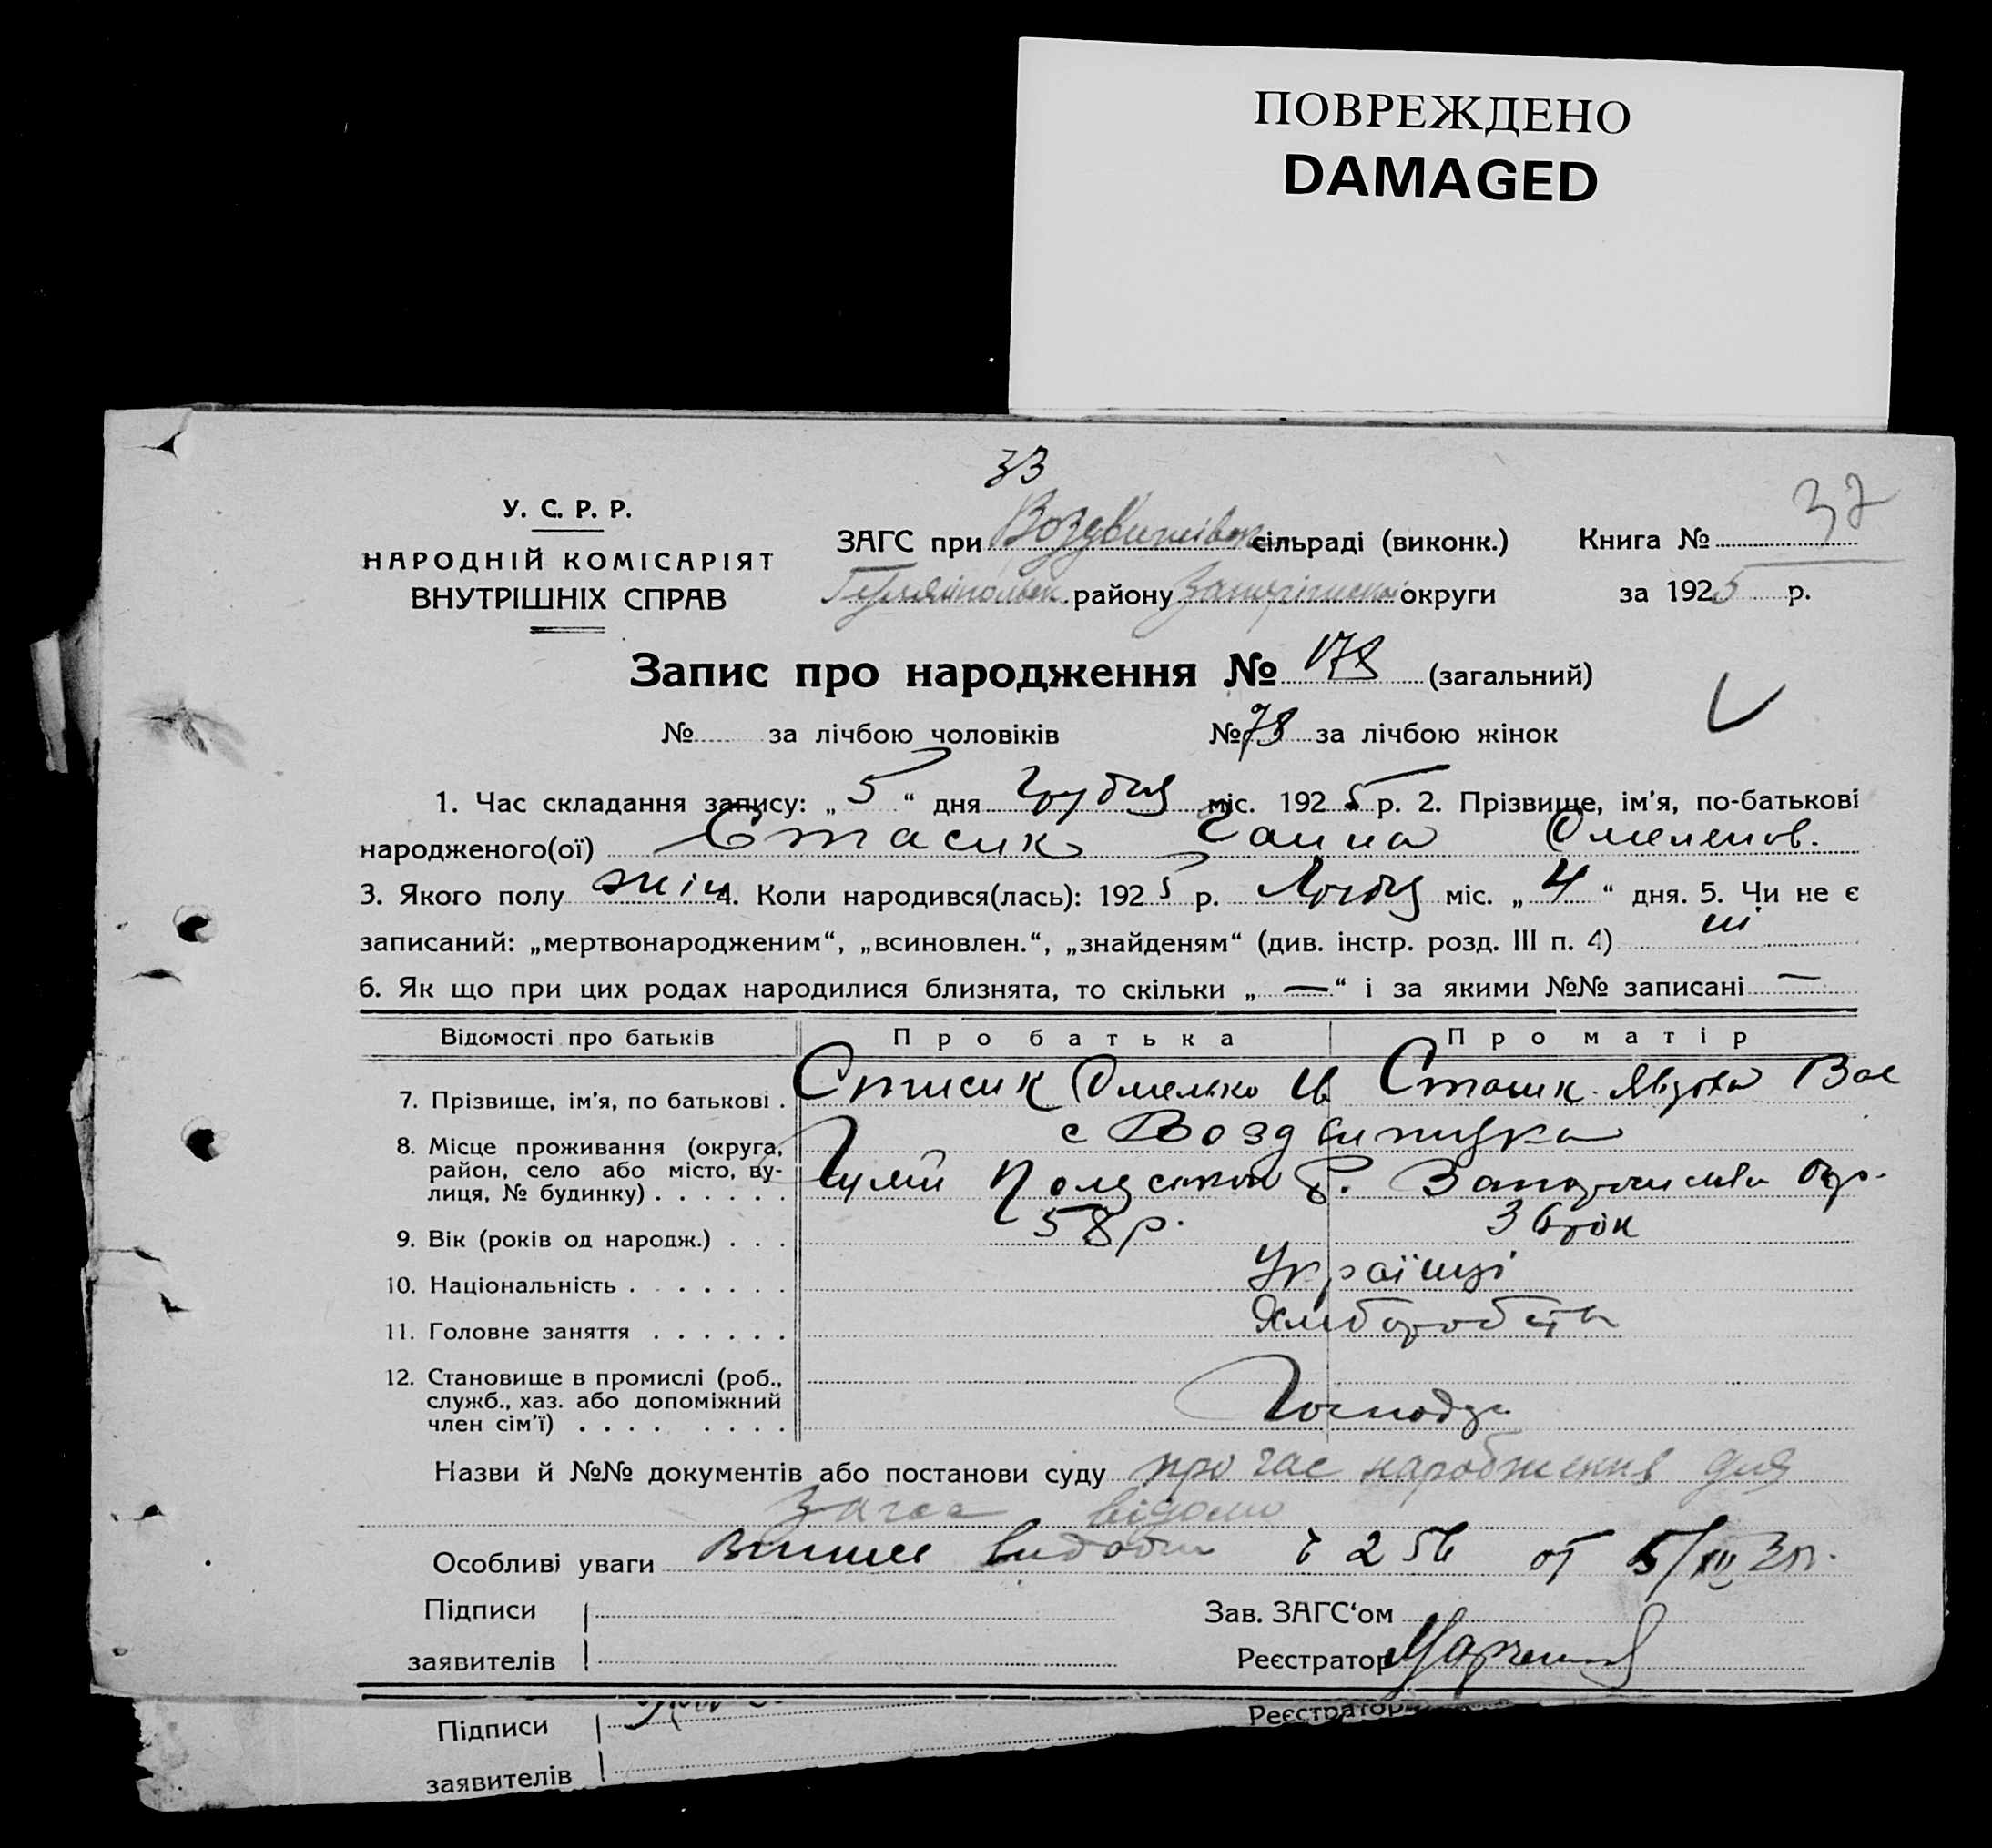 ПОВРЕЖДЕНО
DAMAGED
33
37
У. С. Р. Р.
НАРОДНІЙ КОМІСАРІЯТ
ВНУТРІШНІХ СПРАВ
ЗАГС при Воздвижівск сільраді (виконк.)
Книга №
Гуляйпольськ. району Запоріжської округи
за 1925 р.
Запис про народження № 178 (загальний)
№ за лічбою чоловіків № 78 за лічбою жінок
1. Час складання запису: „5“ дня Грудня міс. 1925 р. 2. Прізвище, ім'я, по-батькові
народженого(ої) Стасик Ганна Омелянов.
3. Якого полу жін 4. Коли народився(лась): 1925 р. міс. „4“ дня. 5. Чи не є
записаний: „мертвонародженим“, „всиновлен.“, „знайденям“ (див. інстр. розд. III п. 4) ні
6. Як що при цих родах народилися близнята, то скільки „—“ і за якими №№ записані —
Відомості про батьків Про батька Про матір
7. Прізвище, ім'я, по батькові . Стасик Омелько Ів Стасик Явдоха Вас
8. Місце проживання (округа, с Воздвижка
район, село або місто, ву- Гуляй Польський Р. Запорижська Окр.
лиця, № будинку) . . . . . .
9. Вік (років од народж.) . . . 58 р. 36 рок
10. Національність . . . . . . . Українці
11. Головне заняття . . . . . . Хліборобств
12. Становище в промислі (роб.,
служб., хаз. або допоміжний Господ.
член сім'ї) . . . . . . . .
Назви й №№ документів або постанови суду про час народження для
Загса відомо
Особливі уваги видобн 256 от 5/III
Підписи
Зав. ЗАГС'ом
заявителів
Реєстратор
Підписи
Реєстратор
заявителів